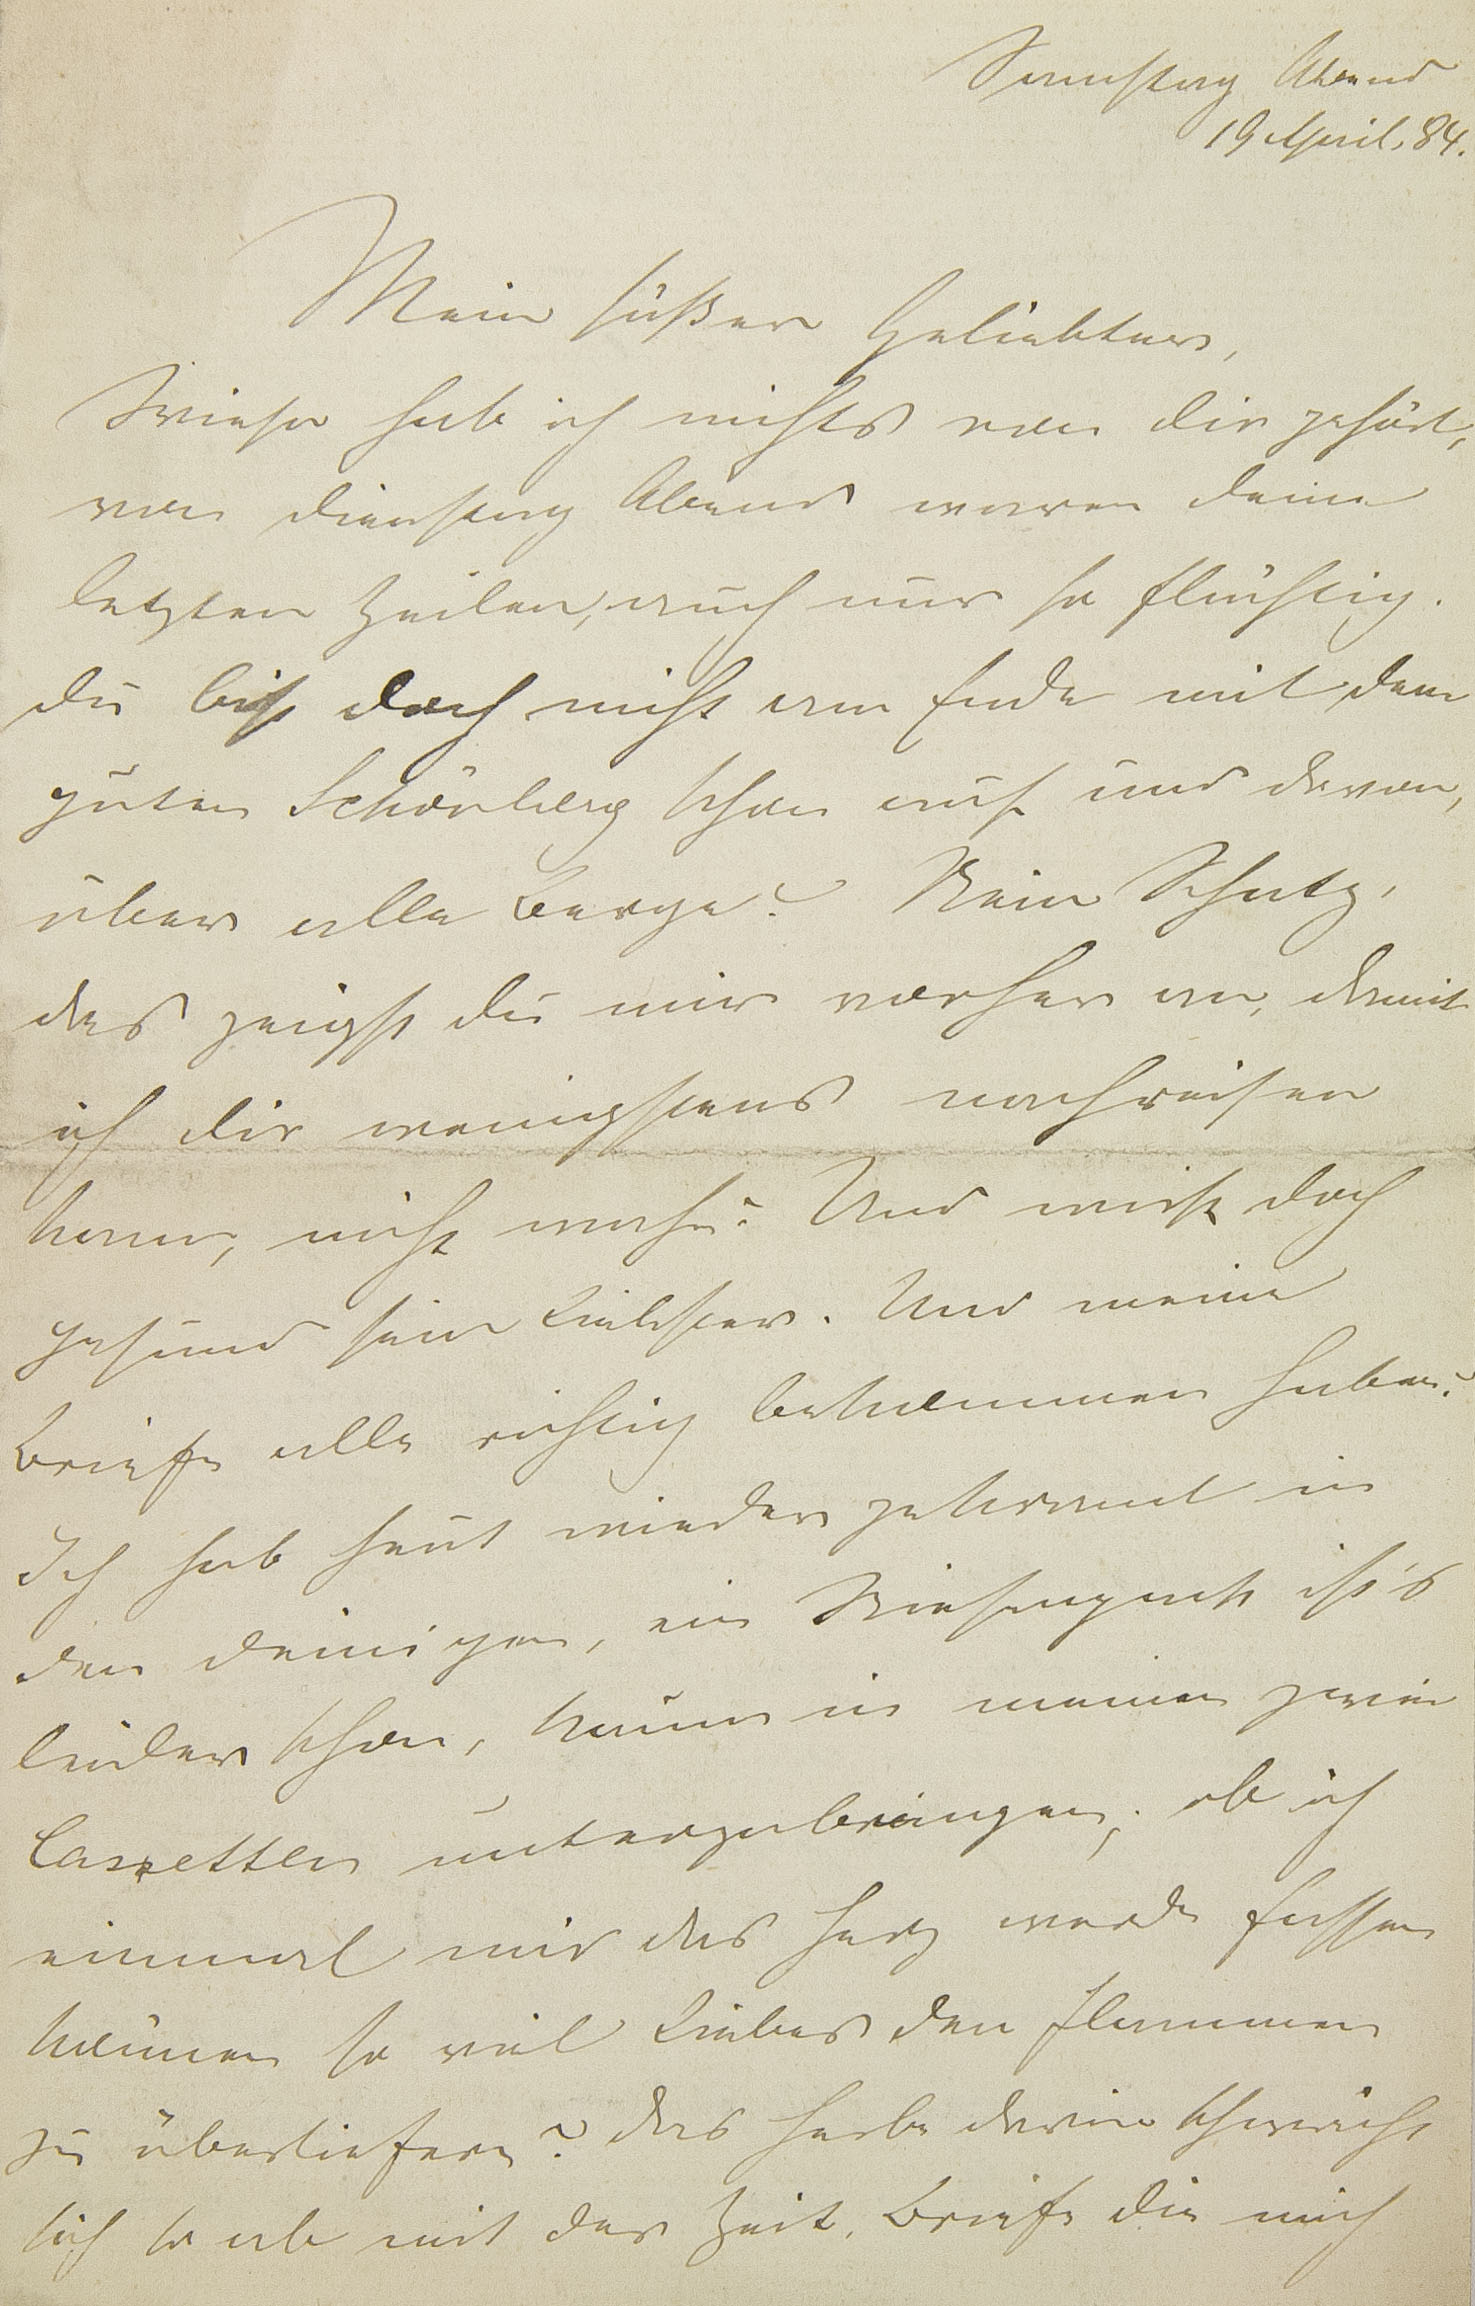 Samstag Abend
19 April. 84.
Mein süßer Geliebter,
Wieso hab ich nichts von dir gehört,
von Dienstag Abend waren deine
letzten Zeilen, auch nur so flüchtig.
du bist doch nicht am Ende mit dem
guten Schönberg schon auf und davon,
über alle Berge? Nein Schatz,
das zeigst du mir vorher an, damit
ich dir wenigstens nachreisen
kann, nicht wahr? Und wirst doch
gesund sein Liebster. Und meine
Briefe alle richtig bekommen haben?
Ich hab heut wieder gekramt in
den deinigen, ein Riesenpack ist's
leider schon, kaum in meinen zwei
Cassetten unterzubringen; ob ich
einmal mir das Herz werde fassen
können so viel Liebes den Flammen
zu überliefern? das Herbe darin schwächt
sich so ab mit der Zeit, Briefe die mich